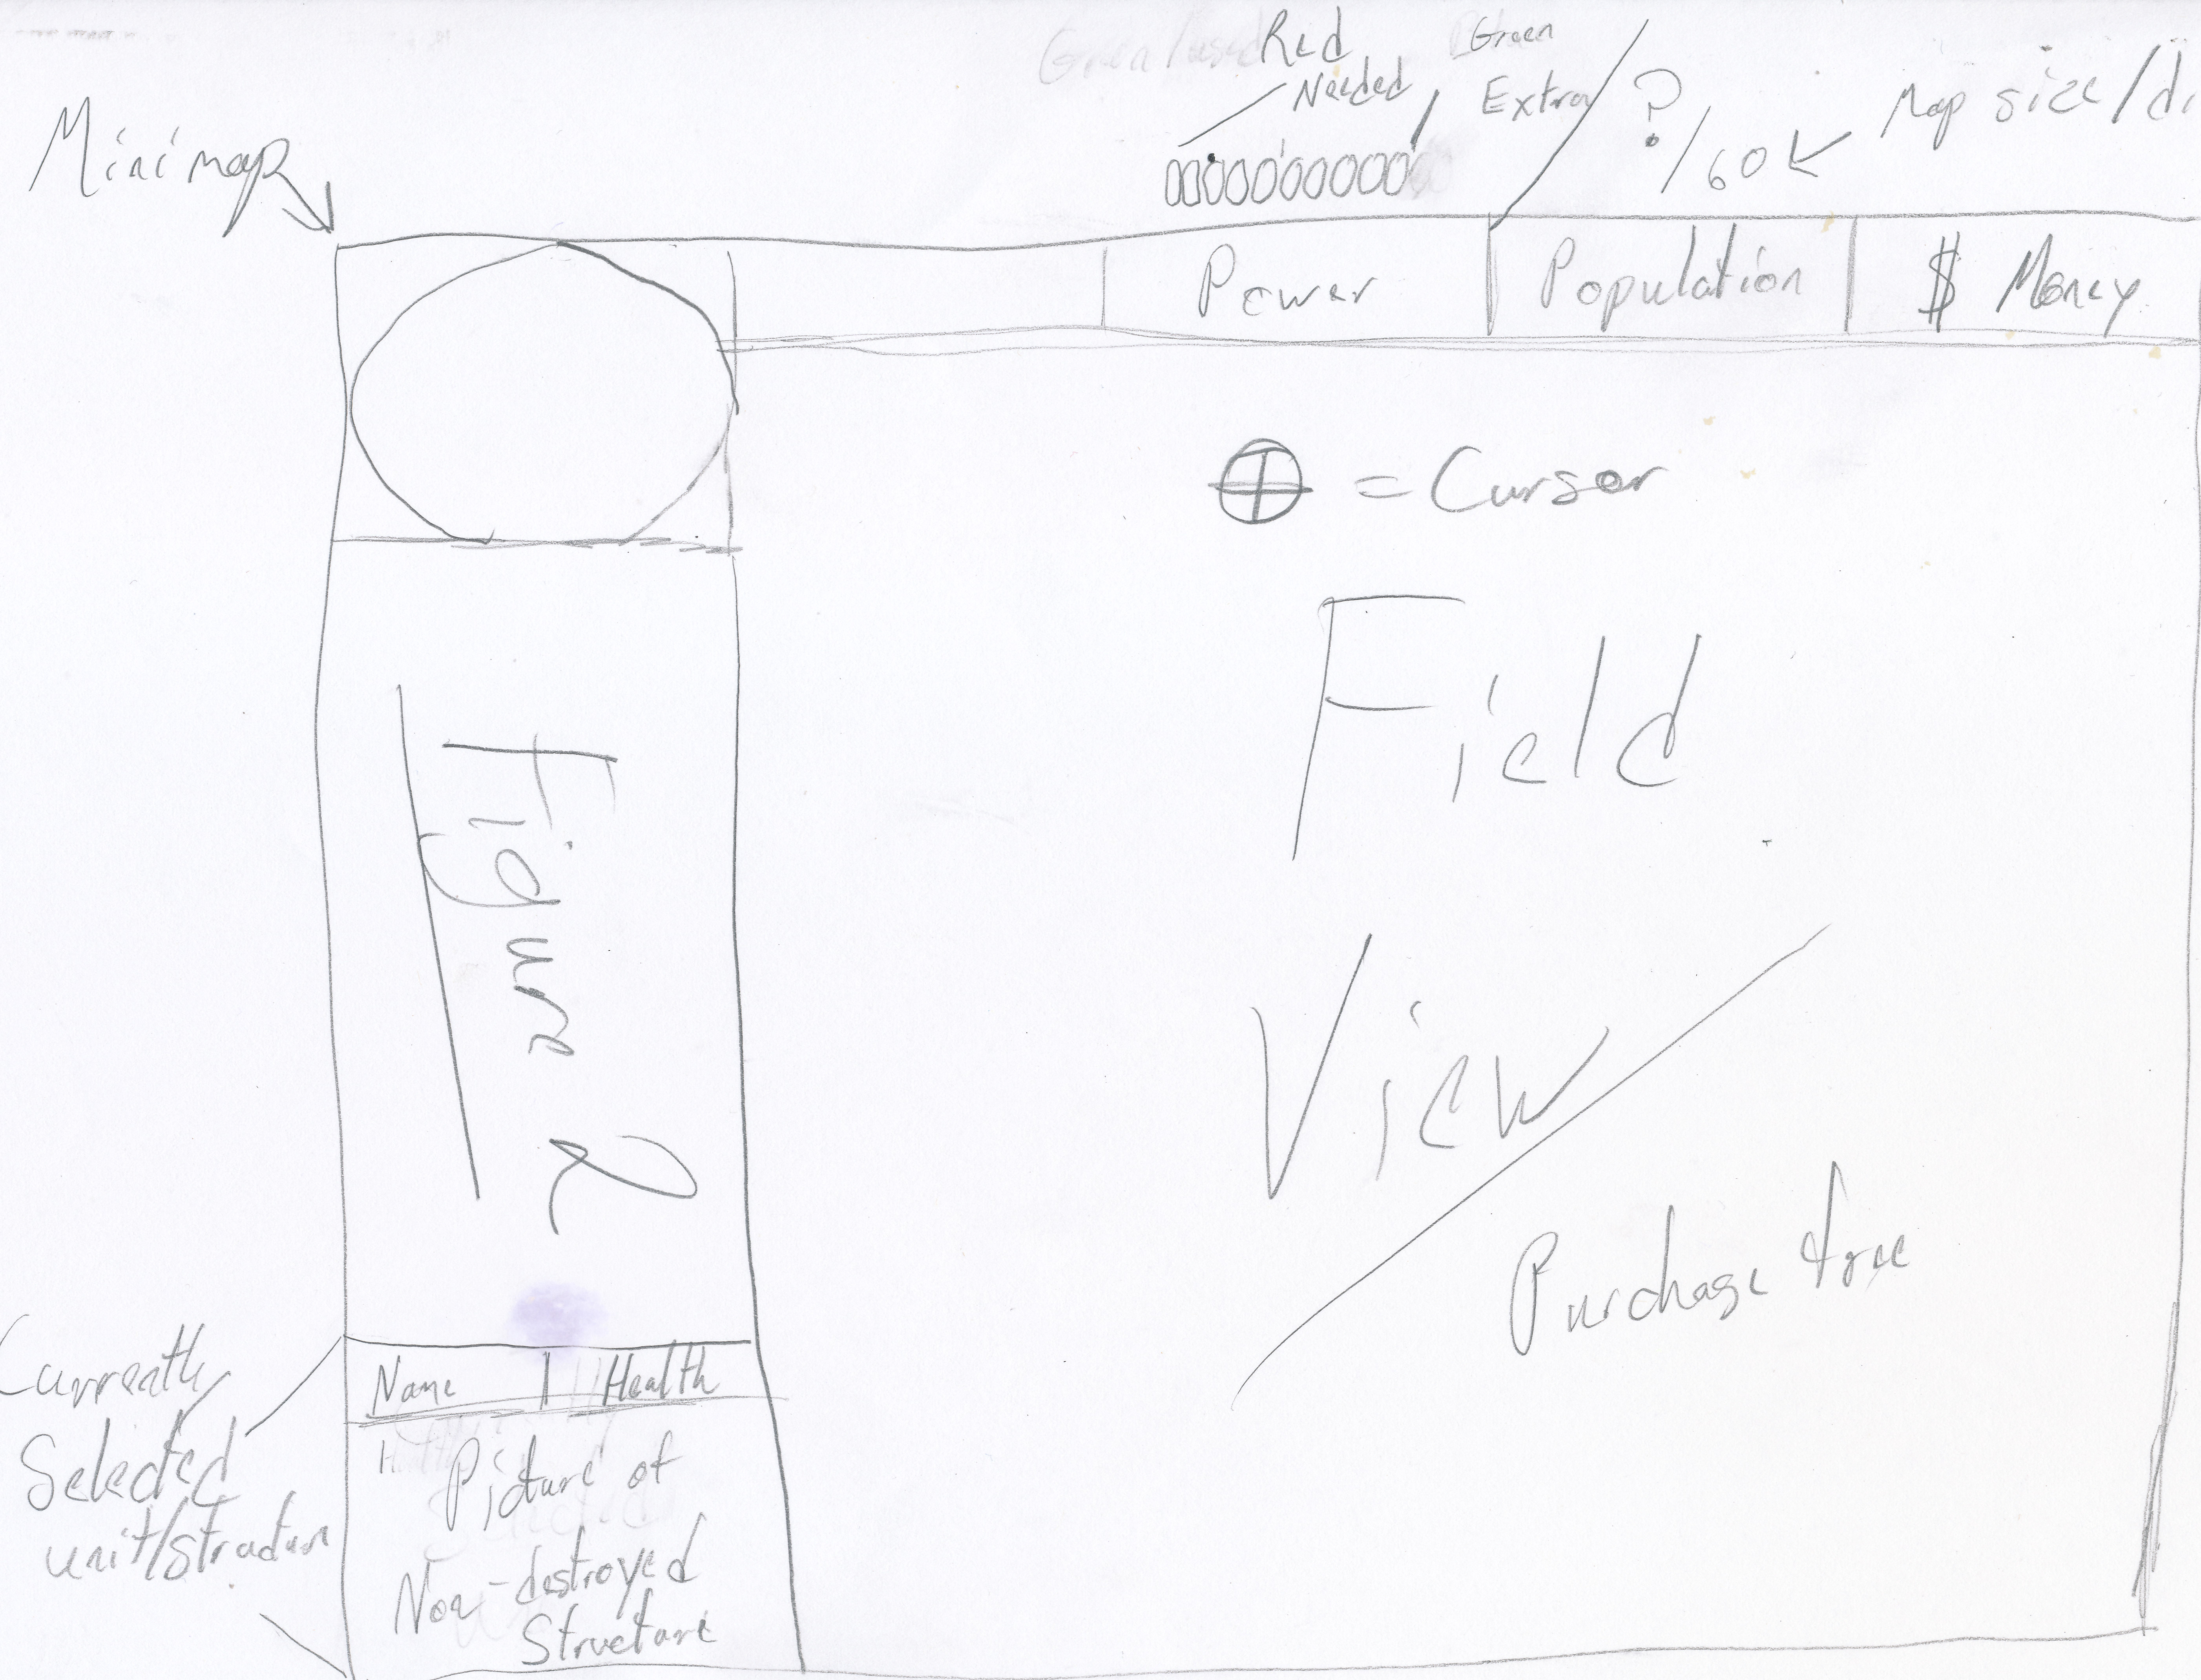 Red
Needed
Green
Extra
? / 60
Map size/di
Minimap
Power
Population
$ Money
= Cursor
Field
View
Purchase tree
Figure 2
Currently
Selected
unit/
Name | Health
Picture of
Non-destroyed
Structure